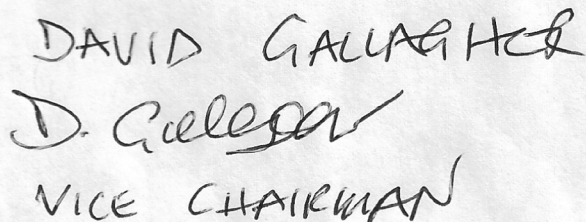 DAVID GALLAGHER
D. Gallagher
VICE CHAIRMAN